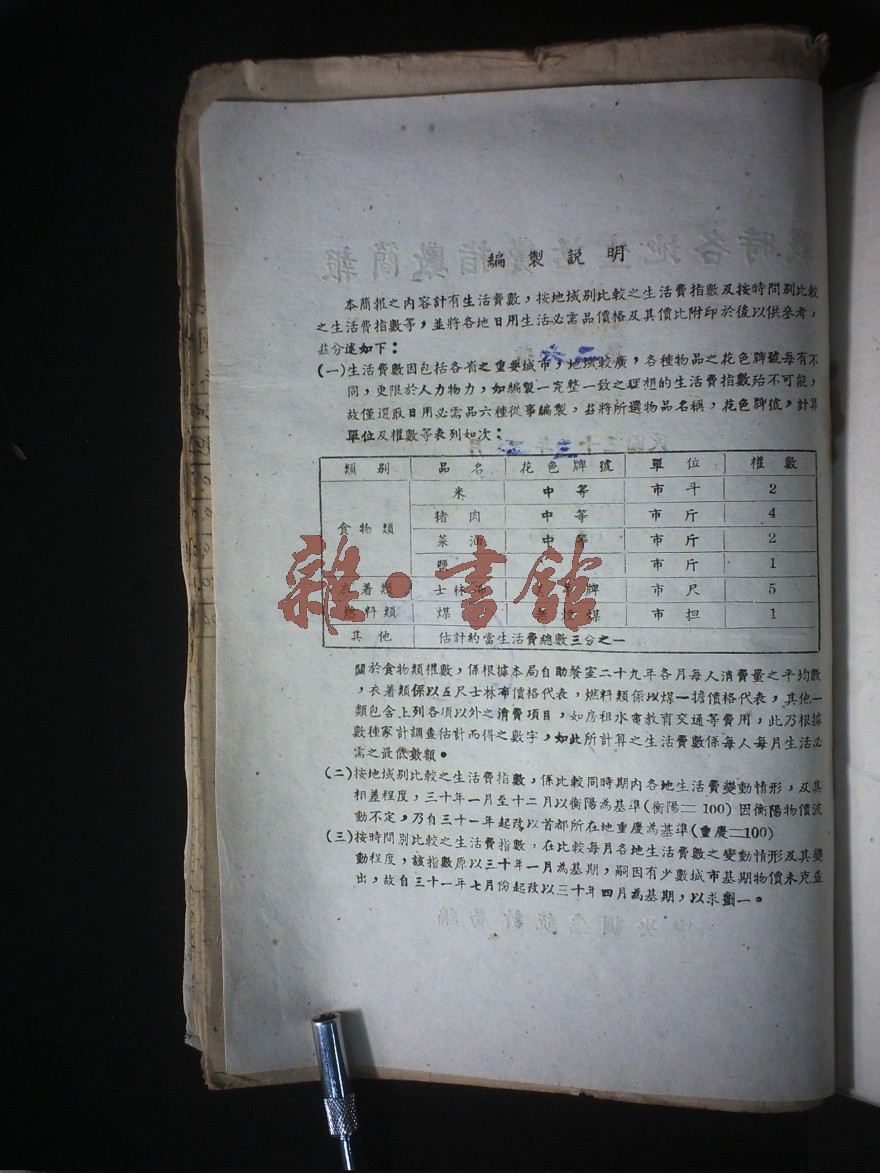 編製説明
本簡報之内容計有生活費數，按地域别比較之生活費指數及按時間别比較
之生活費指數等，並將各地日用生活必需品價格及其價比附印於後以供參考，
茲分述如下：
(一)生活費數因包括各省之重要城市，地域較廣，各種物品之花色牌號每有不
同，更限於人力物力，如編製一完整一致之理想的生活費指數殆不可能，
故僅選取日用必需品六種從事編製，茲將所選物品名稱，花色牌號，計算
單位及權數等表列如次：
類别 品名 花色牌號 單位 權數
食物類 米 中等 市斗 2
猪肉 中等 市斤 4
菜油 中等 市斤 2
鹽 市斤 1
衣着類 士林布 牌 市尺 5
燃料類 煤 煤 市担 1
其他 估計約當生活費總數三分之一
關於食物類權數，係根據本局自助餐室二十九年各月每人消費量之平均數
，衣着類係以五尺士林布價格代表，燃料類係以煤一擔價格代表，其他一
類包含上列各項以外之消費項目，如房租水電教育交通等費用，此乃根據
數種家計調查估計而得之數字，如此所計算之生活費數係每人每月生活必
需之最低數額。
(二)按地域别比較之生活費指數，係比較同時期内各地生活費變動情形，及其
相差程度，三十年一月至十二月以衡陽為基準(衡陽＝100)因衡陽物價波
動不定，乃自三十一年起改以首都所在地重慶為基準(重慶＝100)
(三)按時間别比較之生活費指數，在比較每月各地生活費數之變動情形及其變
動程度，該指數原以三十年一月為基期，嗣因有少數城市基期物價未克查
出，故自三十一年七月份起改以三十年四月為基期，以求劃一。
雜·書館